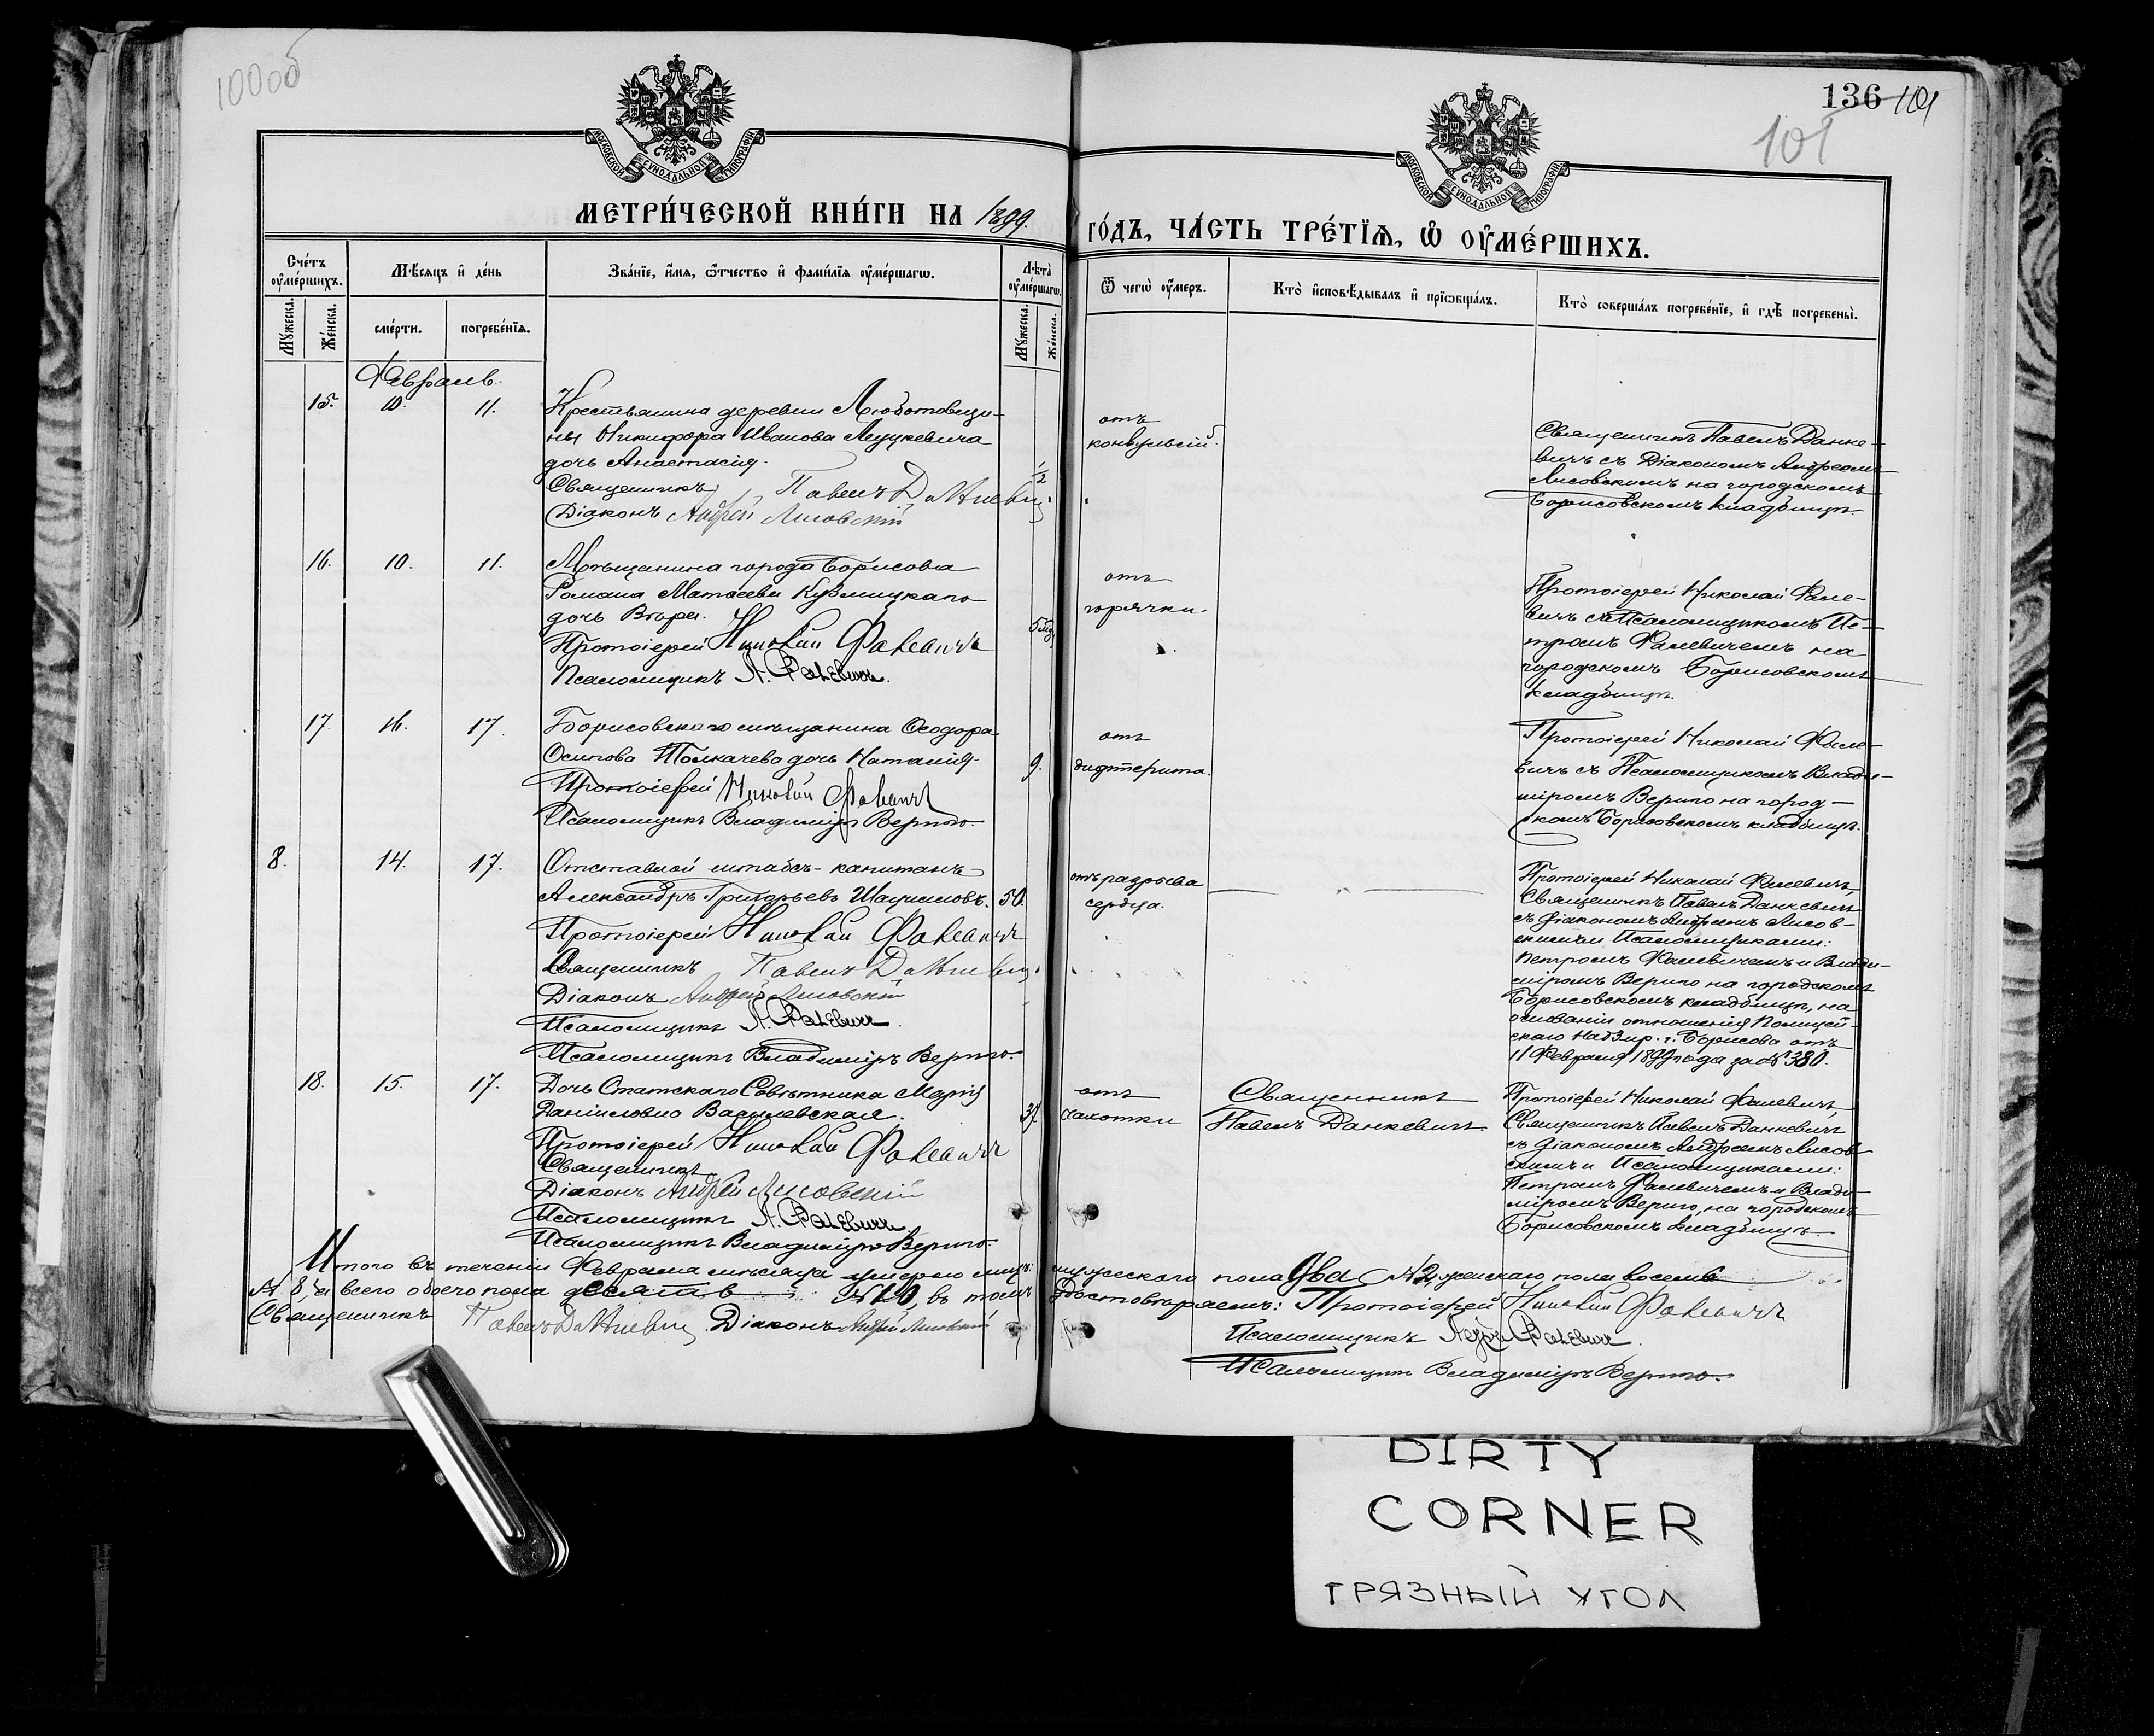 100об
136 101
101
МОСКОВСКОЙ СѴНОДАЛЬНОЙ ТИПОГРАФІИ
МОСКОВСКОЙ СѴНОДАЛЬНОЙ ТИПОГРАФІИ
МЕТРИ́ЧЕСКОЙ КНИ́ГИ НА 1899.
ГО́ДЪ, ЧА́СТЬ ТРЕ́ТЇѦ, Ѡ҆ ОУ҆МЕ́РШИХЪ.
Сче́тъ оу҆ме́ршихъ.
Мꙋжеска.
Же́нска.
Мѣ́сяцъ и҆ де́нь
сме́рти.
погребе́нїѧ.
Зва́нїе, и҆́мѧ, ѻ҆́тчество и҆ фами́лїѧ оу҆ме́ршагѡ.
Лѣта̀ оу҆ме́ршагѡ.
Мꙋжеска.
Же́нска.
Ѿ чегѡ̀ оу҆́меръ.
Кто̀ и҆сповѣ́дывалъ и҆ прїѡбща́лъ.
Кто̀ соверша́лъ погребе́нїе, и҆ гдѣ̀ погребены̀.
Февраль.
15. 10. 11.
Крестьянина деревни Любатовщи-
ны Никифора Иванова Мацкевича
дочь Анастасія.
Священникъ Павелъ Данкевичъ
Діаконъ Андрей Лисовскій
1/2
отъ
конвульсій.
Священникъ Павелъ Данке-
вичъ съ Діакономъ Андреемъ
Лисовскимъ на городскомъ
Борисовскомъ кладбищѣ.
16. 10. 11.
Мѣщанина города Борисова
Романа Матвеева Кузмицкаго
дочь Вѣра.
Протоіерей Николай Фалевичъ
Псаломщикъ П. Фалевичъ.
5 мѣ.
отъ
горячки.
Протоіерей Николай Фале-
вичъ съ Псаломщикомъ Пе-
тромъ Фалевичемъ на
городскомъ Борисовскомъ
кладбищѣ.
17. 16. 17.
Борисовскаго мѣщанина Ѳеодора
Осипова Толкачева дочь Наталія.
Протоіерей Николай Фалевичъ
Псаломщикъ Владиміръ Вериго.
9.
отъ
дифтерита.
Протоіерей Николай Фале-
вичъ съ Псаломщикомъ Влади-
міромъ Вериго на город-
скомъ Борисовскомъ кладбищѣ.
8. 14. 17.
Отставной штабсъ-капитанъ
Александръ Григорьевъ
Протоіерей Николай Фалевичъ
Священникъ Павелъ Данкевичъ
Діаконъ Андрей Лисовскій
Псаломщикъ П. Фалевичъ.
Псаломщикъ Владиміръ Вериго.
50.
отъ разрыва
сердца.
Протоіерей Николай Фалевичъ,
Священникъ Павелъ Данкевичъ
съ діакономъ Андреемъ Лисов-
скимъ и Псаломщиками:
Петромъ Фалевичемъ и Влади-
міромъ Вериго на городскомъ
Борисовскомъ кладбищѣ, на
основаніи отношенія Полицей-
скаго Надзир. г. Борисова отъ
11 Февраля 1899 года за № 380.
18. 15. 17.
Дочь Статскаго Совѣтника Марія
Даниловна Василевская.
Протоіерей Николай Фалевичъ
Священникъ
Діаконъ Андрей Лисовскій
Псаломщикъ П. Фалевичъ
Псаломщикъ Владиміръ Вериго.
37
отъ
чахотки
Священникъ
Павелъ Данкевичъ.
Протоіерей Николай Фалевичъ,
Священникъ Павелъ Данкевичъ
съ діакономъ Андреемъ Лисов-
скимъ и Псаломщиками:
Петромъ Фалевичемъ и Влади-
міромъ Вериго, на городскомъ
Борисовскомъ кладбищѣ.
Итого въ теченіи Февраля мѣсяца умерло мужескаго пола два №2, женскаго пола восемь
№ 8, а всего обоего пола десять № 10, въ томъ удостовѣряемъ: Протоіерей Николай Фалевичъ
Священникъ Павелъ Данкевичъ Діаконъ Андрей Лисовскій
Псаломщикъ Петръ Фалевичъ.
Псаломщикъ Владиміръ Вериго.
DIRTY
CORNER
ГРЯЗНЫЙ УГОЛ